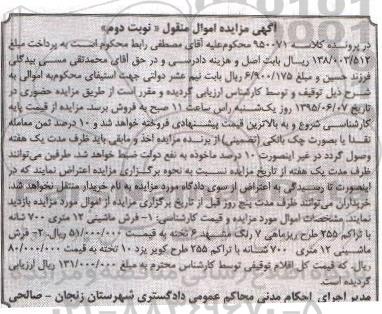 آگهی مزایده اموال منقول « نوبت دوم»
در پرونده کلاسه ۹۵۰۰۷۱ محکوم‌علیه آقای مصطفی رابط محکوم است به پرداخت مبلغ
۱۳۸/۰۰۳/۵۱۲ ریال بابت اصل و هزینه دادرسی و در حق آقای محمدتقی مسی بیدگلی
فرزند حسین و مبلغ ۶/۹۰۰/۱۷۵ ریال بابت نیم عشر دولتی جهت استیفای محکوم‌به اموالی به
شرح ذیل توقیف و توسط کارشناس ارزیابی گردیده و مقرر است از طریق مزایده حضوری در
تاریخ ۱۳۹۵/۰۶/۰۷ روز یک‌شنبه راس ساعت ۱۱ صبح به فروش برسد. مزایده از قیمت پایه
کارشناسی شروع و به بالاترین قیمت پیشنهادی فروخته خواهد شد و ۱۰ درصد ثمن معامله
نقدا یا بصورت چک بانکی (تضمینی) از برنده مزایده اخذ و مابقی باید ظرف مدت یک هفته
وصول گردد در غیر اینصورت ۱۰ درصد ماخوذه به نفع دولت ضبط خواهد شد. طرفین می‌توانند
ظرف مدت یک هفته از تاریخ مزایده نسبت به نحوه برگزاری مزایده اعتراض نمایند که در
اینصورت تا رسیدگی به اعتراض از سوی دادگاه مورد مزایده به نام خریدار منتقل نخواهد شد.
خریداران می‌توانند ظرف مدت پنج روز قبل از تاریخ برگزاری مزایده از اموال مورد مزایده بازدید
نمایند. مشخصات اموال مورد مزایده و قیمت کارشناسی: ۱- فرش ماشینی ۱۲ متری ۷۰۰ شانه
با تراکم ۲۵۵ طرح ریزماهی ۷ رنگ مشهد ۶ تخته به قیمت ۵۱/۰۰۰/۰۰۰ ریال ۲- فرش
ماشینی ۱۲ متری ۷۰۰ شانه با تراکم ۲۵۵ طرح کویر یزد ۱۰ تخته به قیمت ۸۰/۰۰۰/۰۰۰
ریال، که قیمت کل اقلام توقیفی توسط کارشناس محترم به مبلغ ۱۳۱/۰۰۰/۰۰۰ ریال ارزیابی
گردیده است.
مدیر اجرای احکام مدنی محاکم عمومی دادگستری شهرستان زنجان - صالحی